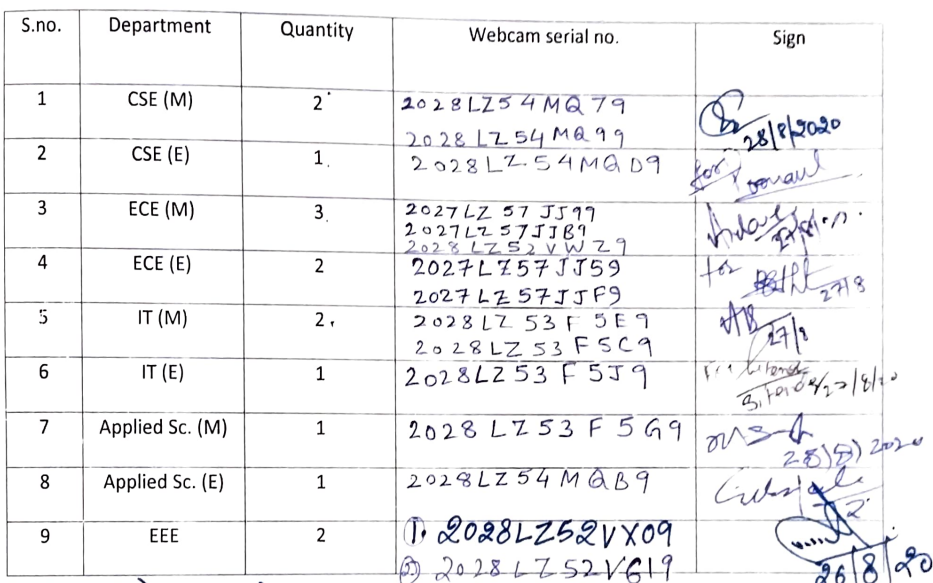 S.no. Department Quantity Webcam serial no. Sign
1 CSE (M) 2 2028LZ54MQ79
2028LZ54MQ99 28/8/2020
2 CSE (E) 1. 2028LZ54MQD9 for
3 ECE (M) 3. 2027LZ57JJ99
2027LZ57JJB9
2028LZ52VWZ9
4 ECE (E) 2 2027LZ57JJ59 for
2027LZ57JJF9 27/8
5 IT (M) 2. 2028LZ53F5E9
2028LZ53F5C9 27/8
6 IT (E) 1 2028LZ53F5J9
7 Applied Sc. (M) 1 2028LZ53F5G9
28/8/2020
8 Applied Sc. (E) 1 2028LZ54MQB9
9 EEE 2 1. 2028LZ52VX09
2) 2028LZ52VG19 26/8/20